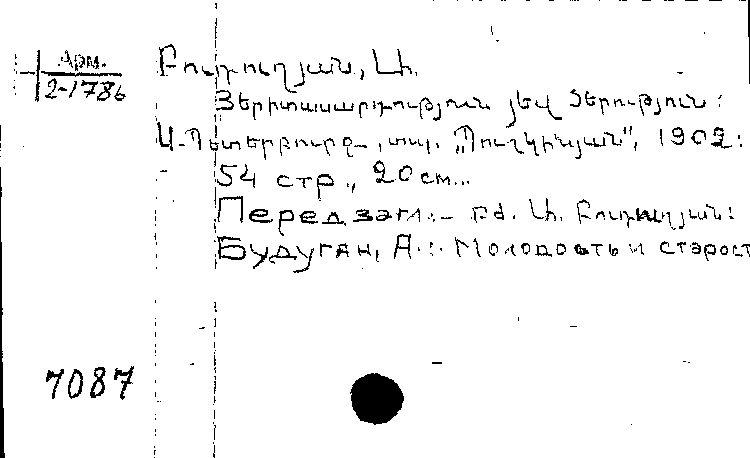 Арм.
2-1786
Բուդուղյան, Ա.
Յերիտասարդություն յեվ ծերություն:
Ս.-Պետերբուրգ, տպ. „Պուշկինյան", 1902:
54 стр., 20 см...
Перед загл.:– Բժ. Ա. Բուդուղյան:
Будугян, А.: Молодость и старост
7087